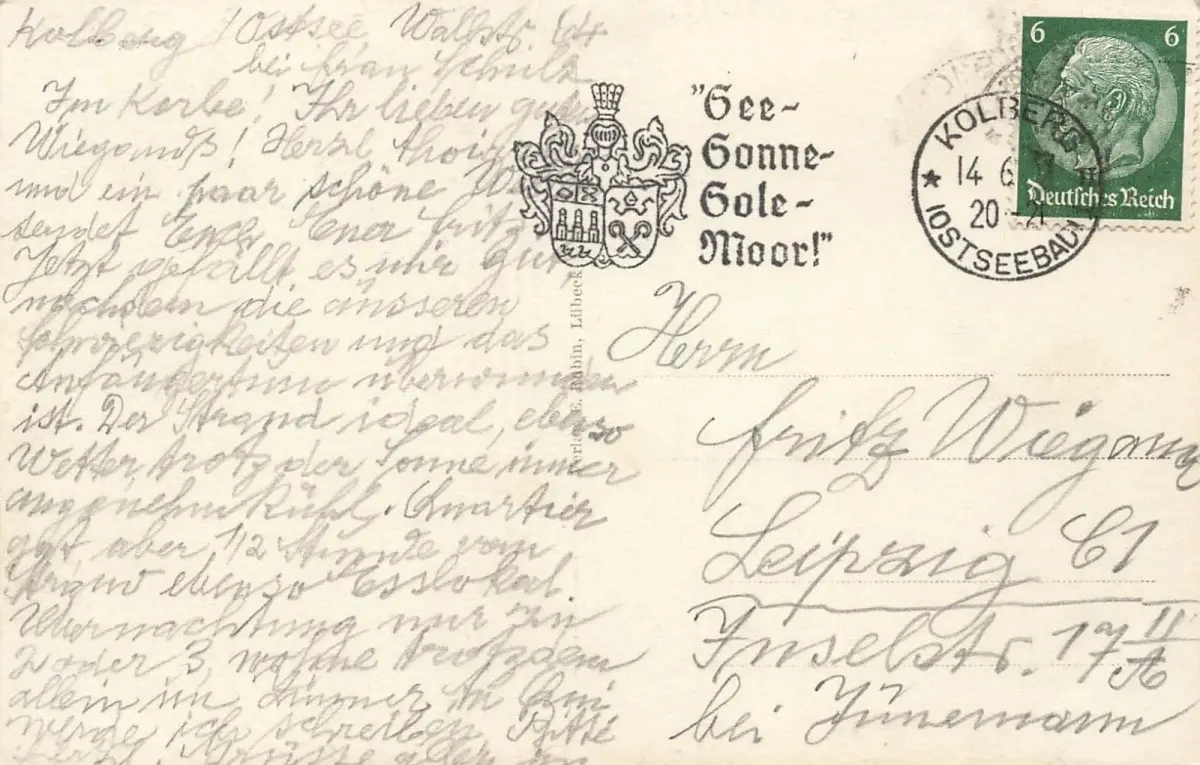 Kolberg / Ostsee Wallstr. 64
bei Frau Schulz
Im Korbe! Ihr lieben guten
Herzl. Ahoi
und ein paar schöne
sendet Euch Euer Fritz
Jetzt gefällt es mir gut,
nachdem die äusseren
Schwierigkeiten und das
Anfängertum überwunden
ist. Der Strand ideal, ebenso
Wetter, trotz der Sonne immer
angenehm kühl. Quartier
gut aber 1/2 Stunde vom
ebenso Esslokal
nur zu
2 oder 3, wohne trotzdem
allein im Zimmer.
werde ich schreiben. Bitte
Grüsse
"See-
Sonne-
Sole-
Moor!"
6 6
Deutsches Reich
KOLBERG
14 6
20 -21
(OSTSEEBAD)
E. Rubin, Lübeck
Herrn
Fritz Wiegand
Leipzig C1
Inselstr. 17 II
A
bei Jünemann